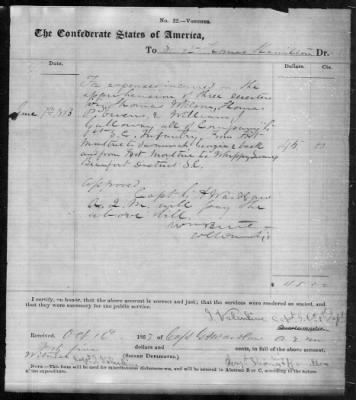 No. 22.—Voucher.
The Confederate States of America,
To Thomas Hamilton Dr.
Date. Dollars. Cts.
For expenses incurred in the
apprehension of three deserters
Thomas Wilson, Thomas
Owens, & William
Galloway, all of Company
1st S.C. Infantry, from Fort
Moultrie to Savannah Georgia & back
and from Fort Moultrie to Whippy Swamp
Beaufort District S.C. 45 00
Approved
Capt G. A Wardlaw
A. Q. M. will pay the
above bill
Wm Butler
$ 45.00
I certify, on honor, that the above account is correct and just; that the services were rendered as stated, and
that they were necessary for the public service.
J Valentine Capt
Quartermaster.
Received, Oct 16th 1863 of Capt G A Wardlaw A Q M
Forty five dollars and cents, in full of the above account.
(Signed Duplicates.)
Witness Capt J Valentine
Thomas Hamilton
Note.—This form will be used for miscellaneous disbursements, and will be entered in Abstract B or C, according to the nature
of the expenditure.